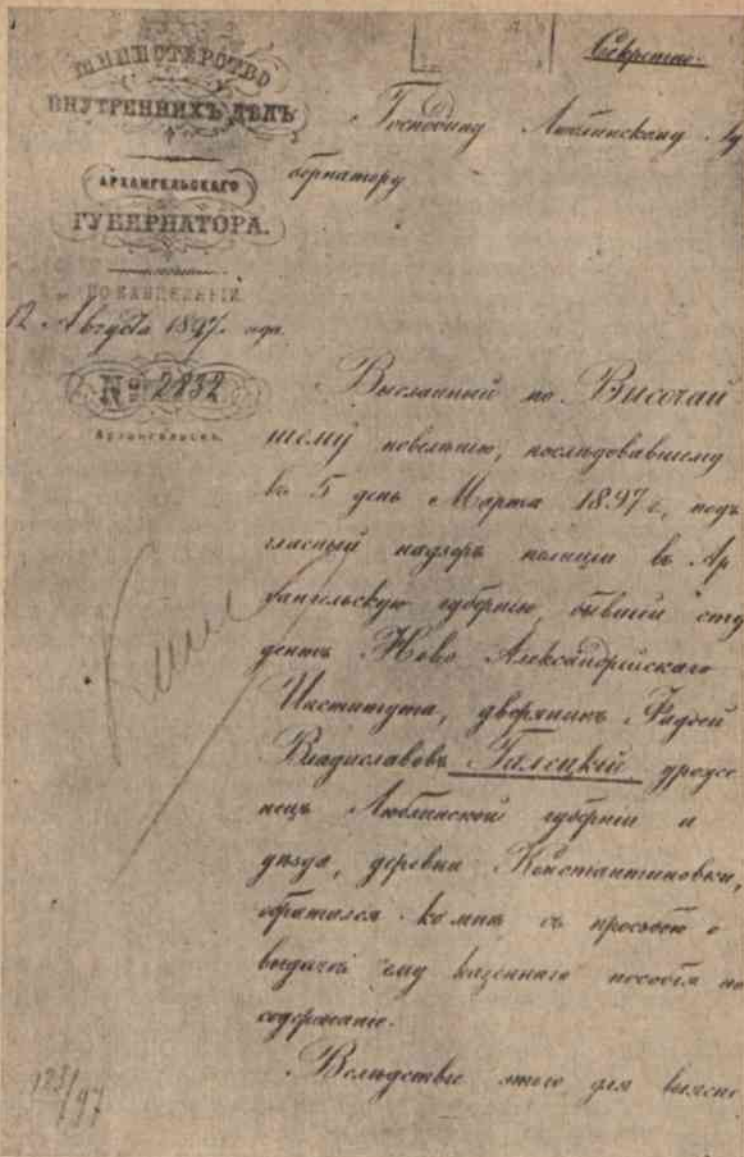 Секретно.
МИНИСТЕРСТВО
ВНУТРЕННИХЪ ДѢЛЪ
Господину Люблинскому Гу
бернатору
АРХАНГЕЛЬСКАГО
ГУБЕРНАТОРА.
ПО КАНЦЕЛЯРІИ.
12 Августа 1897 года
№ 2832
Архангельскъ.
Высланный по Высочай
шему повелѣнію, послѣдовавшему
въ 5 день Марта 1897 г., подъ
гласный надзоръ полиціи въ Ар
хангельскую губернію бывшій сту
дентъ Ново Александрійскаго
Института, дворянинъ Фадей
Владиславовъ Галецкій, уроже
нецъ Люблинской губерніи и
уѣзда, деревни Константиновки,
обратился ко мнѣ съ просьбою о
выдачѣ ему казеннаго пособія на
содержаніе.
Вслѣдствіе этого для выясне
123/97